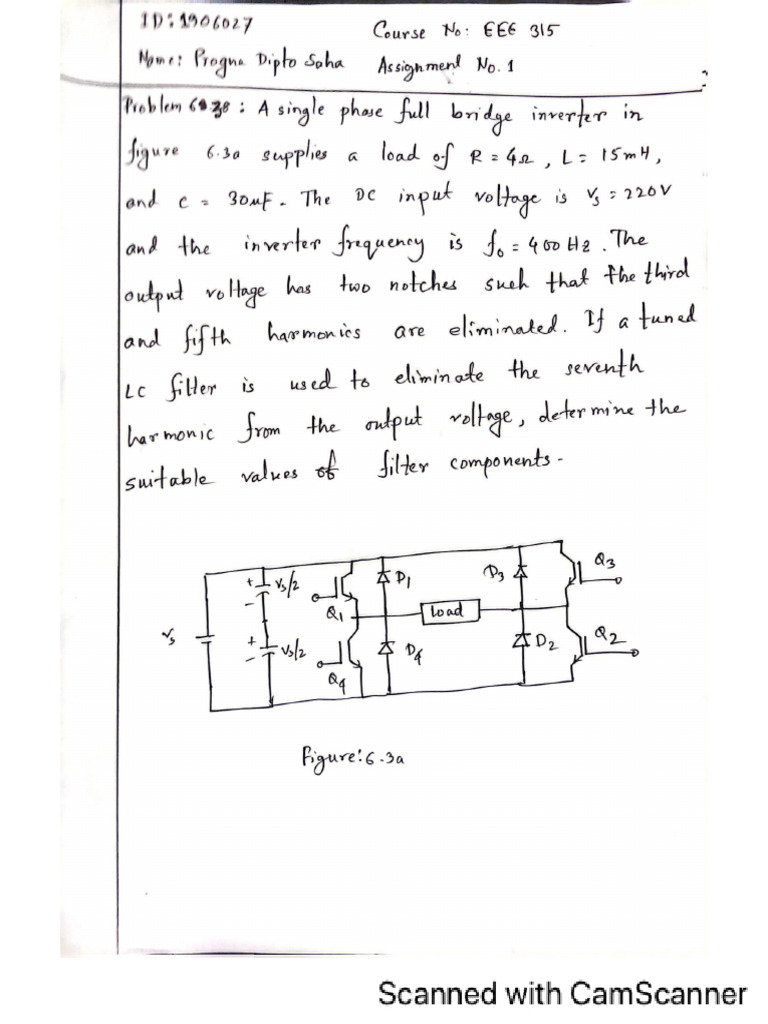 ID: 1906027
Course No: EEE 315
Name: Progna Dipto Saha
Assignment No. 1
Problem : A single phase full bridge inverter in
figure 6.3a supplies a load of R = 4Ω, L = 15mH,
and c = 30μF. The DC input voltage is Vs = 220V
and the inverter frequency is f₀ = 400 Hz. The
output voltage has two notches such that the third
and fifth harmonics are eliminated. If a tuned
LC filter is used to eliminate the seventh
harmonic from the output voltage, determine the
suitable values of filter components.
Vs
+ Vs/2 -
+ Vs/2 -
Q1
Q4
D1
D4
Load
D3
D2
Q3
Q2
Figure: 6.3a
Scanned with CamScanner